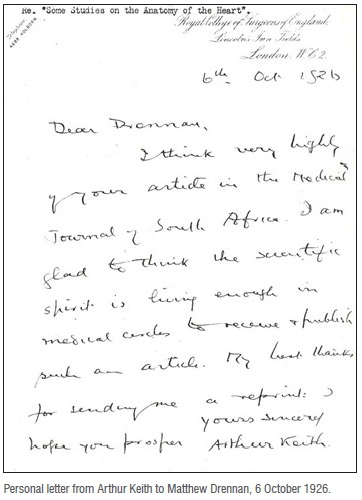 Re. "Some Studies on the Anatomy of the Heart".
Royal College of Surgeons of England,
Lincoln's Inn Fields,
London. W.C.2.
6th Oct 1926
Dear Drennan,
I think very highly
of your article in the Medical
Journal of South Africa. I am
glad to think the scientific
spirit is living enough in
medical circles to receive & publish
such an article. My best thanks
for sending me a reprint: I
yours sincerely
hope you prosper Arthur Keith.
Personal letter from Arthur Keith to Matthew Drennan, 6 October 1926.